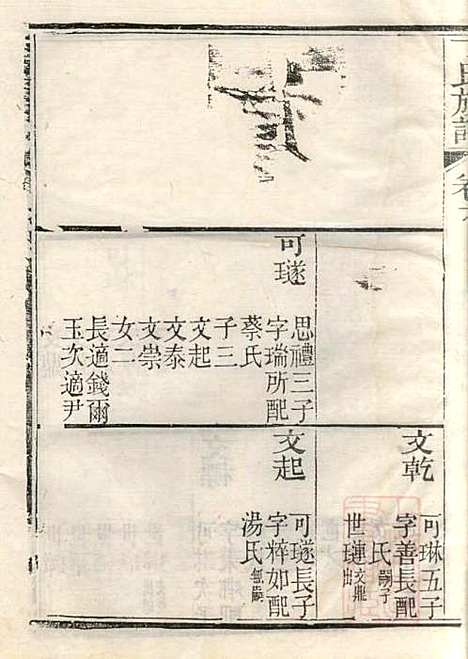 氏族譜
卷
可璲
思禮三子
字瑞所配
蔡氏
子三
文起
文泰
文崇
女二
長適錢爾
玉次適尹
文乾
可琳五子
字善長配
氏嗣子
世璉文
出
文起
可璲長子
字粹如配
湯氏無嗣